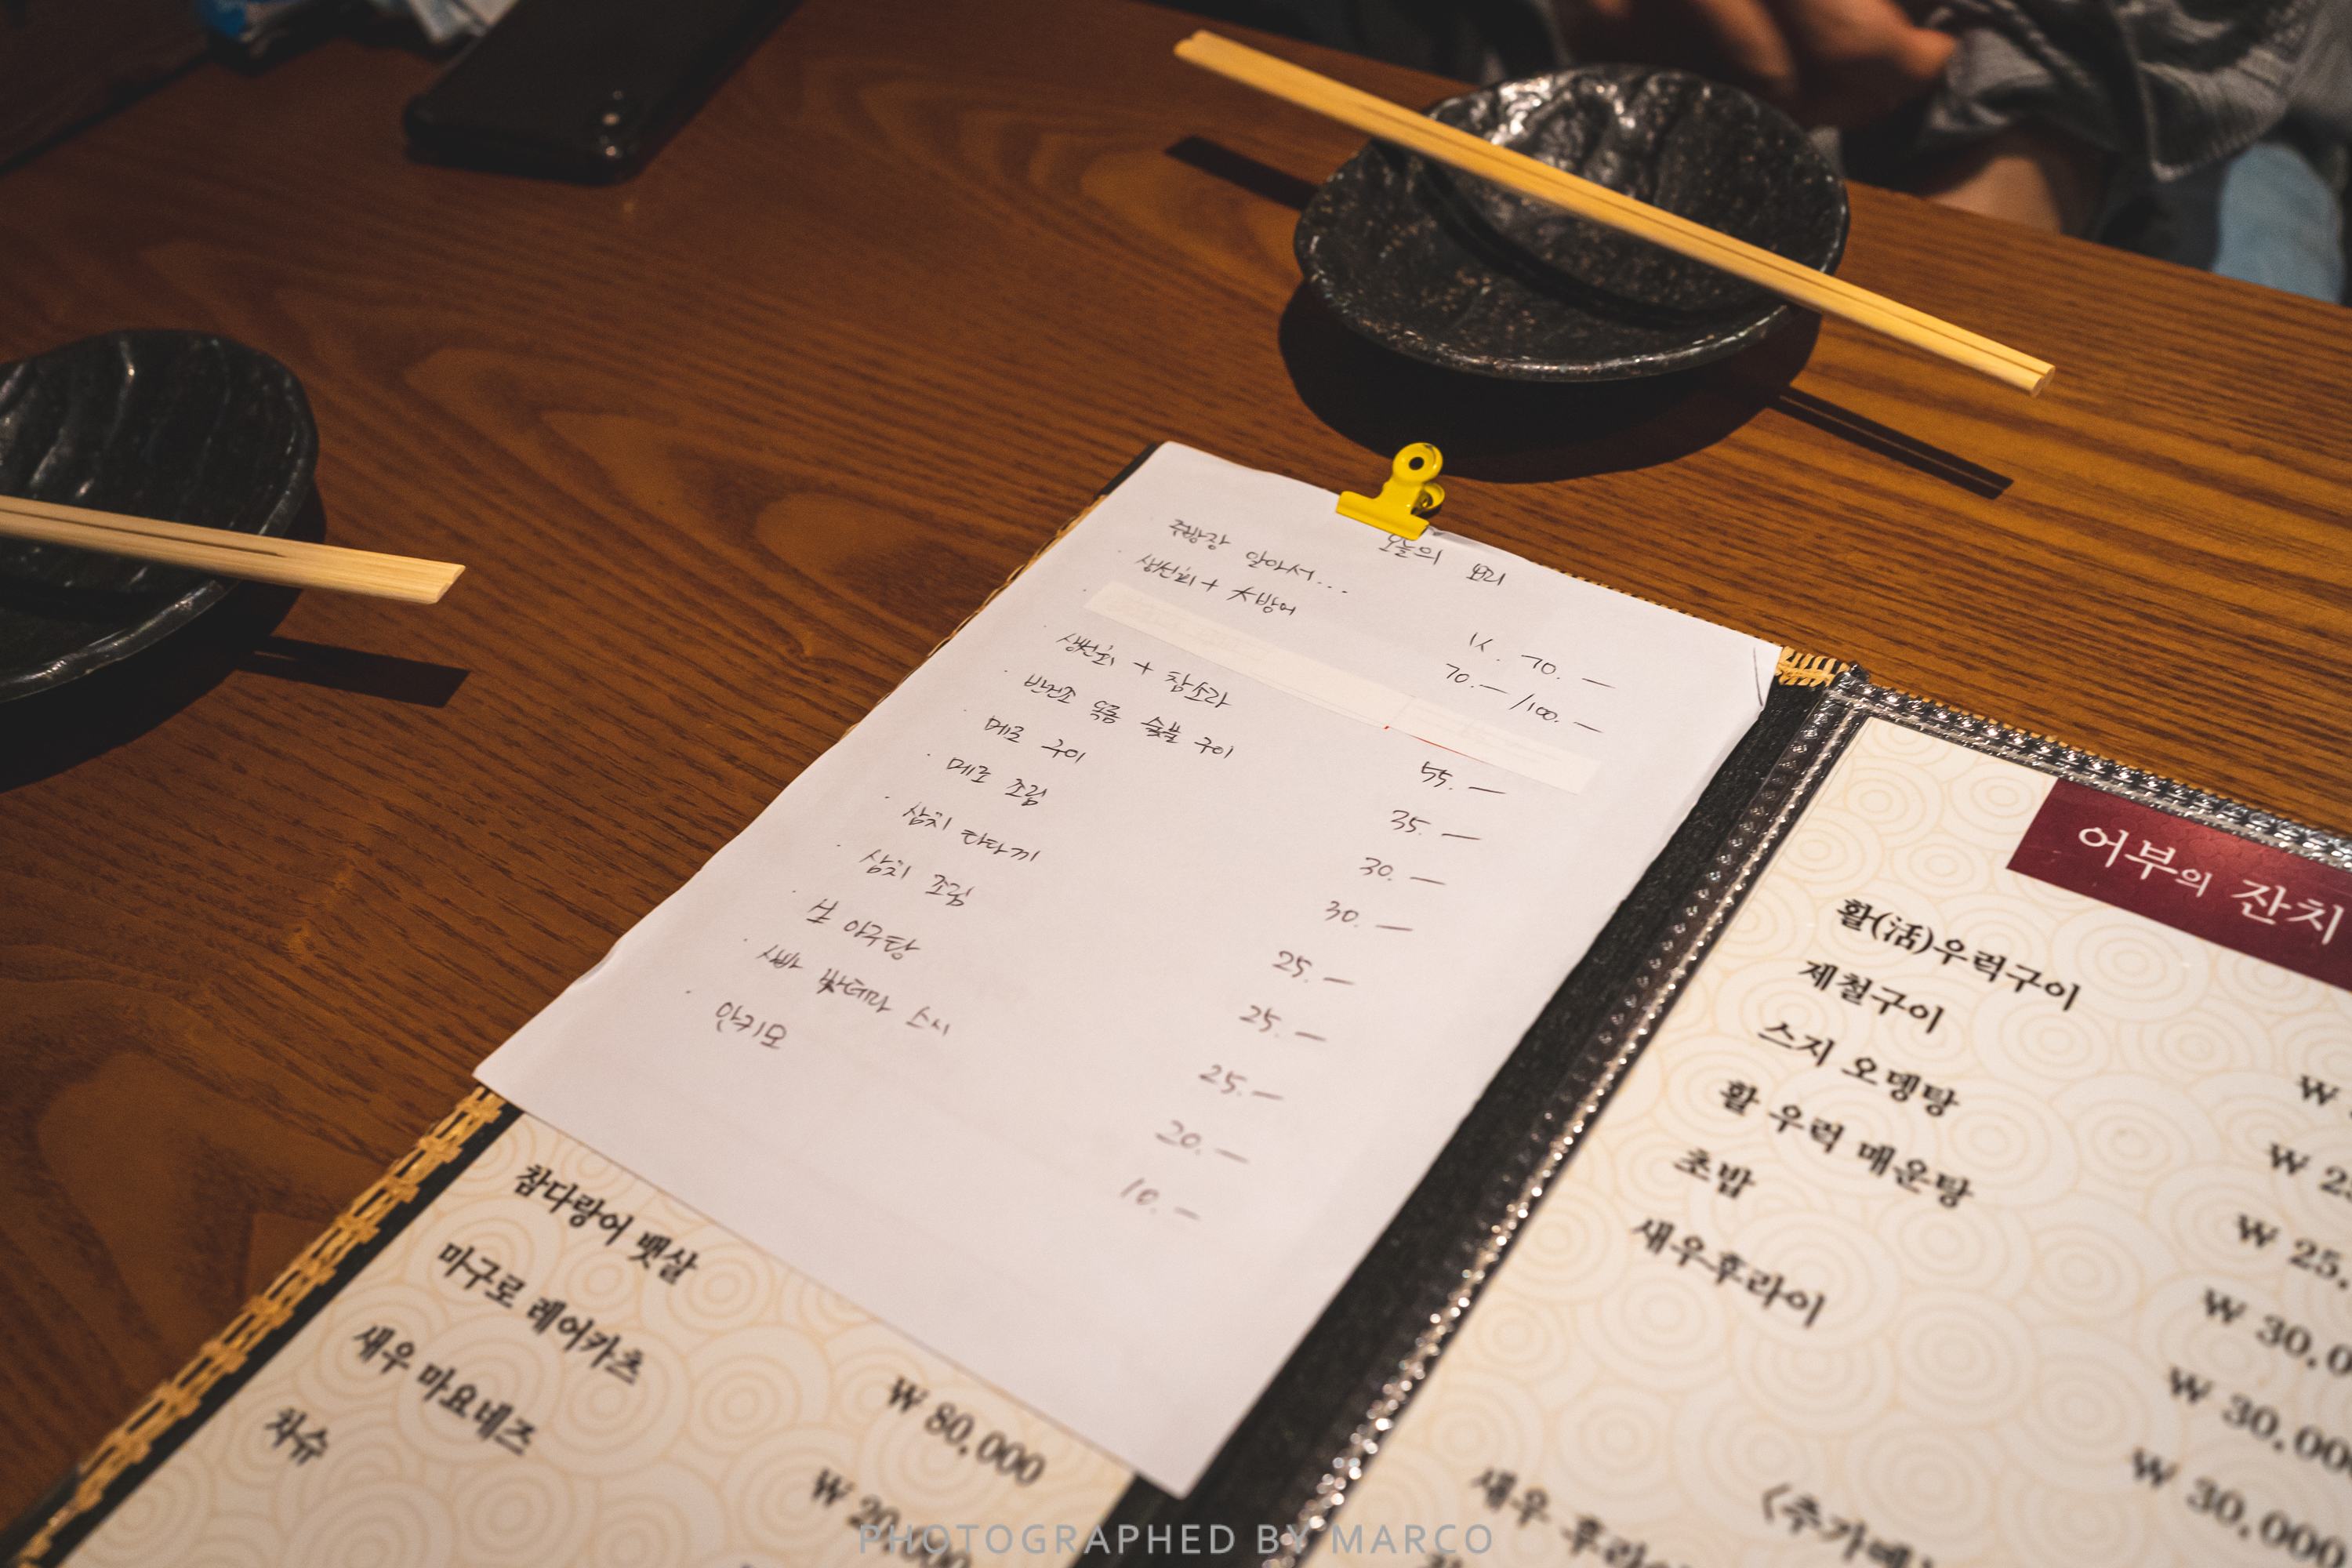 오늘의 요리
주방장 알아서... 1人 70.—
생선회 + 大방어 70.— /100.—
생선회 + 참소라 55.—
반건조 옥돔 숯불 구이 35.—
메로 구이 30.—
메로 조림 30.—
삼치 타다끼 25.—
삼치 조림 25.—
生 아구탕 25.—
스시 20.—
안키모 10.—
참다랑어 뱃살 ₩ 80,000
마구로 레어카츠 ₩ 20,000
새우 마요네즈
차슈
어부의 잔치
활(活)우럭구이 ₩
제철구이 ₩ 2
스지 오뎅탕 ₩ 25,
활 우럭 매운탕 ₩ 30,0
초밥 ₩ 30,00
새우후라이 ₩ 30,000
<추가메
새우 후라이
PHOTOGRAPHED BY MARCO